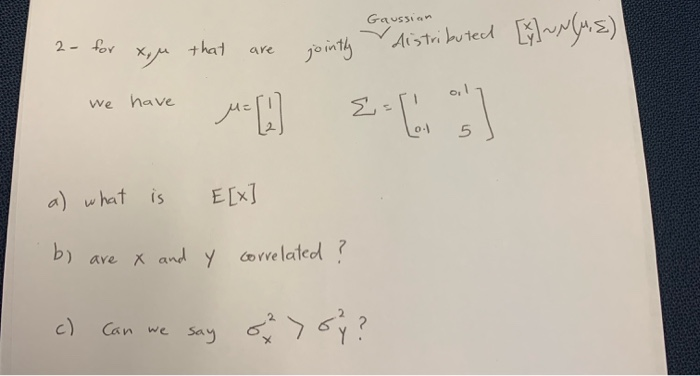 2- for x,μ that are jointly Gaussian distributed [x y]~N(μ,Σ)
we have μ=[1 2] Σ=[1 0,1 0.1 5]
a) what is E[x]
b) are x and y correlated ?
c) Can we say σ²x > σ²y ?